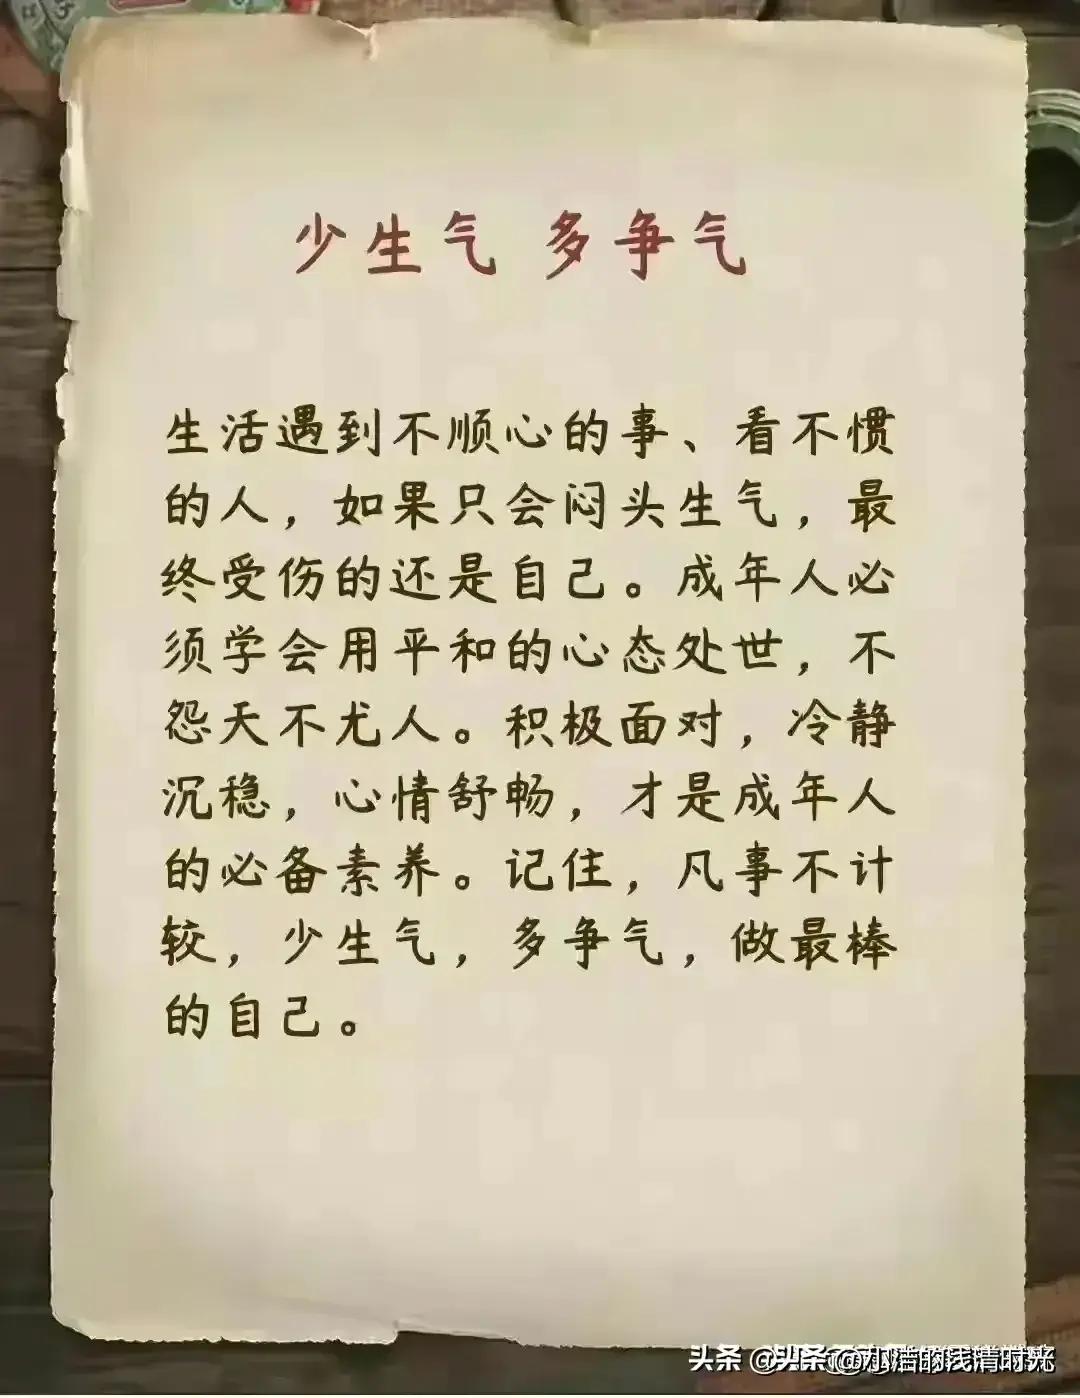 少生气 多争气
生活遇到不顺心的事、看不惯
的人，如果只会闷头生气，最
终受伤的还是自己。成年人必
须学会用平和的心态处世，不
怨天不尤人。积极面对，冷静
沉稳，心情舒畅，才是成年人
的必备素养。记住，凡事不计
较，少生气，多争气，做最棒
的自己。
头条